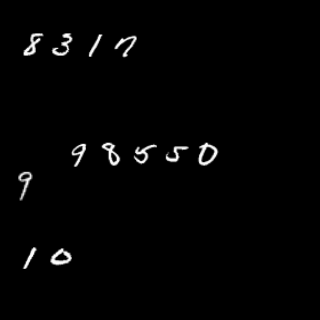 8317
98550
9
10